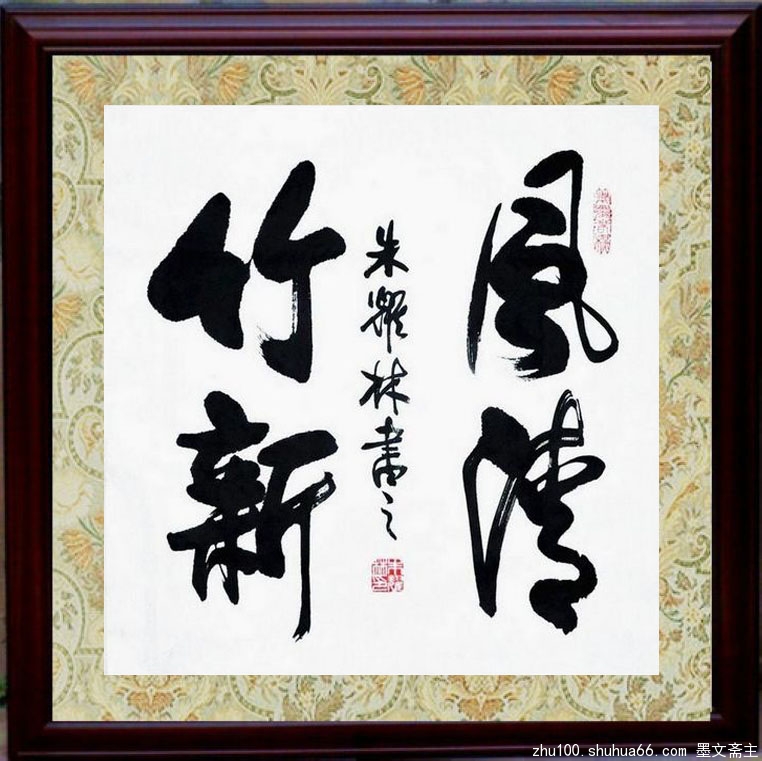 風清
竹新
朱耀林書之
zhu100.shuhua66.com 墨文斋主